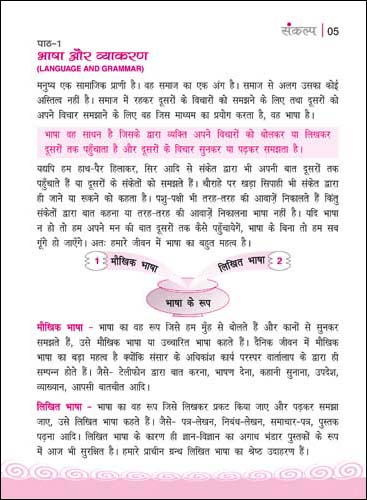 संकल्प | 05
पाठ-1
भाषा और व्याकरण
(LANGUAGE AND GRAMMAR)
मनुष्य एक सामाजिक प्राणी है। वह समाज का एक अंग है। समाज से अलग उसका कोई
अस्तित्व नहीं है। समाज में रहकर दूसरों के विचारों को समझने के लिए तथा दूसरों को
अपने विचार समझाने के लिए वह जिस माध्यम का प्रयोग करता है, वह भाषा है।
भाषा वह साधन है जिसके द्वारा व्यक्ति अपने विचारों को बोलकर या लिखकर
दूसरों तक पहुँचाता है और दूसरों के विचार सुनकर या पढ़कर समझता है।
यद्यपि हम हाथ-पैर हिलाकर, सिर आदि से संकेत द्वारा भी अपनी बात दूसरों तक
पहुँचाते हैं या दूसरों के संकेतों को समझते हैं। चौराहे पर खड़ा सिपाही भी संकेत द्वारा
ही जाने या रूकने को कहता है। पशु-पक्षी भी तरह-तरह की आवाज़ें निकालते हैं किंतु
संकेतों द्वारा बात कहना या तरह-तरह की आवाज़ें निकालना भाषा नहीं है। यदि भाषा
न हो तो हम अपने मन की बात दूसरों तक कैसे पहुँचायेगें, भाषा के बिना तो हम सब
गूंगे हो जाऐंगे। अतः हमारे जीवन में भाषा का बहुत महत्व है।
1 मौखिक भाषा लिखित भाषा 2
भाषा के रूप
मौखिक भाषा - भाषा का वह रूप जिसे हम मुँह से बोलते हैं और कानों से सुनकर
समझते हैं, उसे मौखिक भाषा या उच्चारित भाषा कहते हैं। दैनिक जीवन में मौखिक
भाषा का बड़ा महत्व है क्योंकि संसार के अधिकांश कार्य परस्पर वार्तालाप के द्वारा ही
सम्पन्न होते हैं। जैसे- टेलीफोन द्वारा बात करना, भाषण देना, कहानी सुनाना, उपदेश,
व्याख्यान, आपसी बातचीत आदि।
लिखित भाषा - भाषा का वह रूप जिसे लिखकर प्रकट किया जाए और पढ़कर समझा
जाए, उसे लिखित भाषा कहते हैं। जैसे- पत्र-लेखन, निबंध-लेखन, समाचार-पत्र, पुस्तक
पढ़ना आदि। लिखित भाषा के कारण ही ज्ञान-विज्ञान का अगाध भंडार पुस्तकों के रूप
में आज भी सुरक्षित है। हमारे प्राचीन ग्रन्थ लिखित भाषा का श्रेष्ठ उदाहरण हैं।